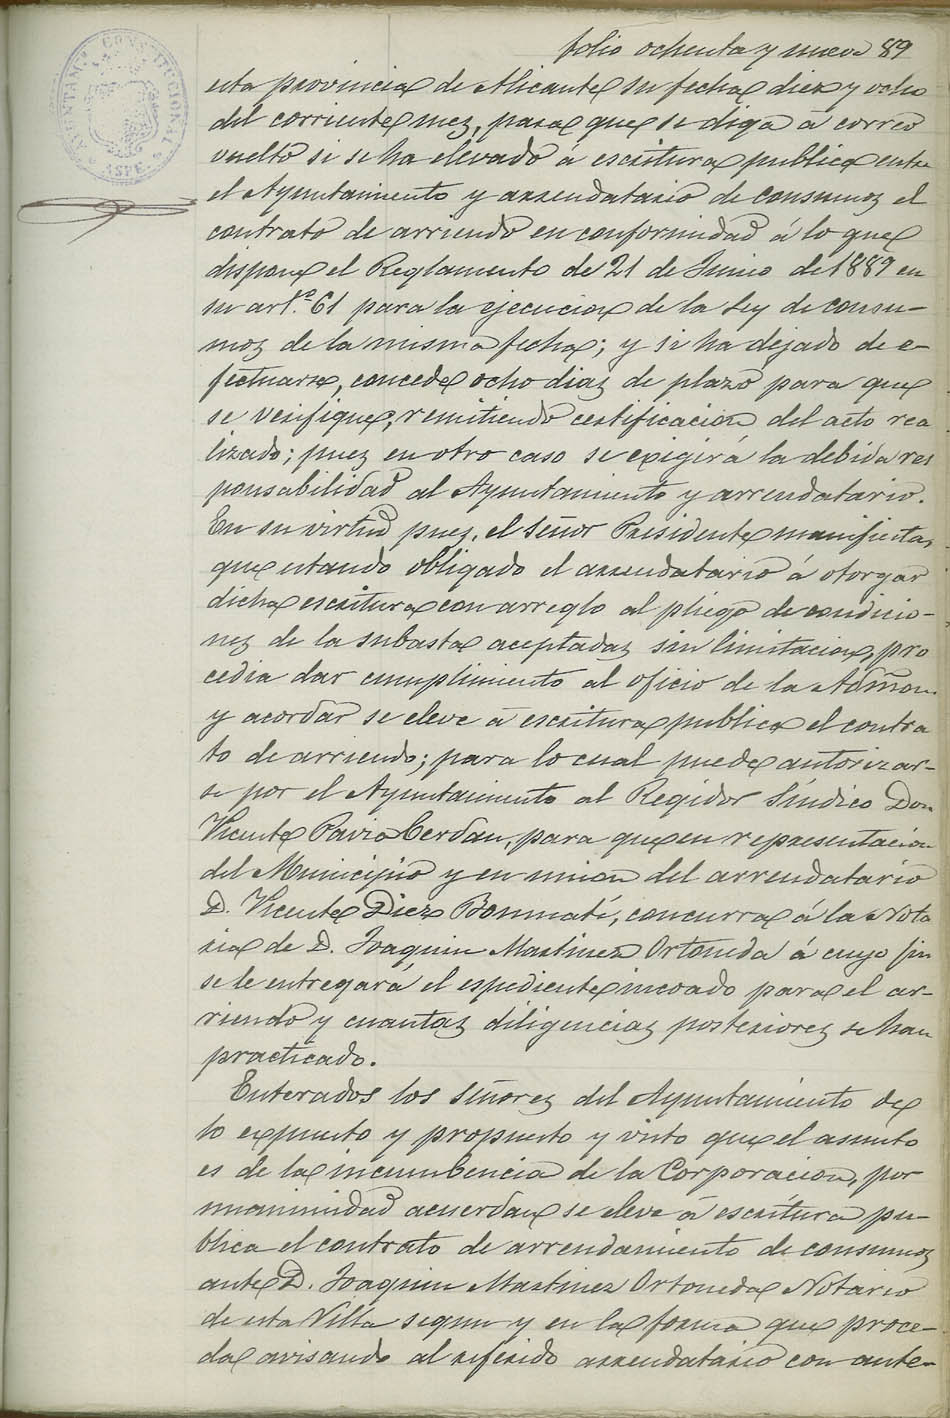 AYUNTAMTO CONSTITUCIONAL
ASPE
folio ochenta y nueve 89
esta provincia de Alicante su fecha diez y ocho
del corriente mez, para que se diga á correo
vuelto si se ha elevado á escritura publica entre
el Ayuntamiento y arrendatario de consumoz el
contrato de arriendo en conformidad á lo que
dispone el Reglamento de 21 de Junio de 1889 en
su art.º 61 para la ejecucion de la Ley de consu-
moz de la misma fecha; y si ha dejado de e-
fectuarse, concede ocho diaz de plazo para que
se verifique, remitiendo certificación del acto rea
lizado; puez en otro caso se exigirá la debida res
ponsabilidad al Ayuntamiento y arrendatario.
En su virtud puez, el señor Presidente manifiesta,
que estando obligado el arrendatario á otorgar
dicha escritura con arreglo al pliego de condicio-
nez de la subasta aceptadaz sin limitacion, pro
cedia dar cumplimiento al oficio de la Admon.
y acordar se eleve á escritura publica el contra
to de arriendo; para lo cual puede autorizar-
se por el Ayuntamiento al Regidor Síndico Don
Vicente Pavia Cerdan, para que en representación
del Municipio y en union del arrendatario
D. Vicente Diez Bonmatí, concurra á la Nota
ria de D. Joaquin Martinez Ortoneda á cuyo fin
se le entregará el espediente incoado para el ar-
riendo y cuantaz diligenciaz posteriorez se han
practicado.
Enterados los Señorez del Ayuntamiento de
lo expuesto y propuesto y visto que el asunto
es de la incumbencia de la Corporacion, por
unanimidad acuerdan se eleve á escritura pu-
blica el contrato de arrendamiento de consumoz
ante D. Joaquin Martinez Ortoneda Notario
de esta Villa segun y en la forma que proce-
da avisando al referido arrendatario con ante-